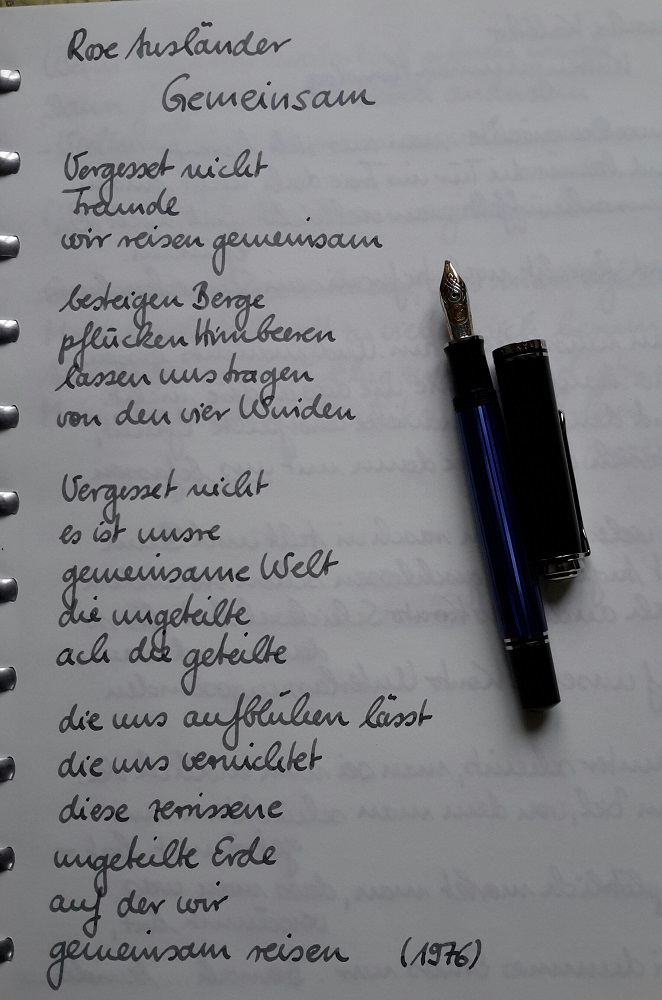 Rose Ausländer
Gemeinsam
Vergesset nicht
Freunde
wir reisen gemeinsam
besteigen Berge
pflücken Himbeeren
lassen uns tragen
von den vier Winden
Vergesset nicht
es ist unsre
gemeinsame Welt
die ungeteilte
ach die geteilte
die uns aufblühen lässt
die uns vernichtet
diese zerrissene
ungeteilte Erde
auf der wir
gemeinsam reisen (1976)